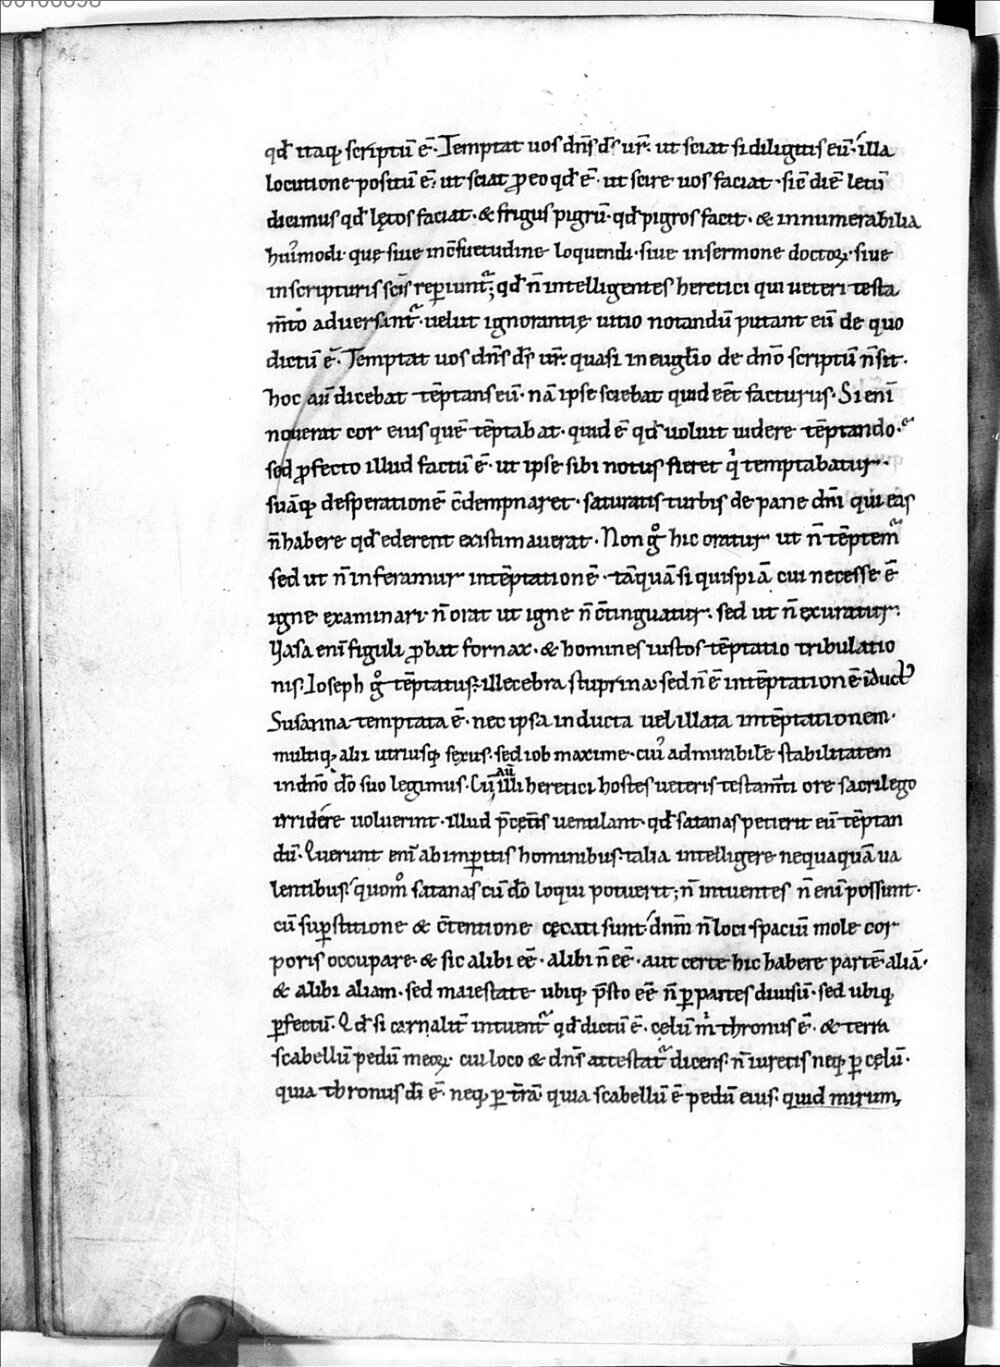 qđ itaq; scriptū ē. Temptat uos dn̄s d̄s ur̄. ut sciat si diligitis eū. illa
locutione positū ē. ut sciat ꝓ eo qđ ē. ut scire uos faciat. sic̄ diē letū
dicimus qđ lętos faciat. & frigus pigrū. qđ pigros facit. & innumerabilia
hui᾽modi. quę siue in ꝯsuetudine loquendi. siue in sermone doctoꝝ. siue
in scripturis sc̄is reperiunt᷑; qđ n̄ intelligentes heretici qui ueteri testa
m̄to aduersant᷑. uelut ignorantię uitio notandū putant eū de quo
dictū ē. Temptat uos dn̄s d̄s ur̄. quasi in euglīo de dn̄o scriptū n̄ sit.
hoc au᷑ dicebat tēptans eū. nā ipse sciebat quid eēt facturus. Si enī
nouerat cor eius quē tēptabat. quid ē qđ uoluit uidere tēptando.
sed ꝓfecto illud factū ē. ut ipse sibi notus fieret qⁱ temptabatur.
suāq; desperationē c̄dempnaret. saturatis turbis de pane dn̄i qui eas
n̄ habere qđ ederent existimauerat. Non g̊ hic oratur ut n̄ tēptem᷑
sed ut n̄ inferamur in tēptationē. tāquā si quispiā cui necesse ē
igne examinari. n̄ orat ut igne n̄ c̄tinguatur. sed ut n̄ exuratur.
Uasa enī figuli ꝓbat fornax. & homines iustos tēptatio tribulatio
nis. Ioseph g̊ tēptatus. illecebra stuprina. sed n̄ ē in tēptationē īduct᾽
Susanna temptata ē. nec ipsa inducta uel illata in tēptationem.
multiq; alii utriusq; sexus. sed iob maxime. cui᾽ admirabilē stabilitatem
in dn̄o d̄o suo legimus. Cū au᷑ illi heretici hostes ueteris testam̄ti ore sacrilego
irridere uoluerint. illud p̄ cęt̄is uentilant. qđ satanas petierit eū tēptan
dū. Querunt enī ab imꝑitis hominibus. talia intelligere nequaquā ua
lentibus. quom̊ satanas cū d̄o loqui potuerit; n̄ intuentes n̄ enī possunt.
cū suꝑstitione & c̄tentione cęcati sunt. dn̄m n̄ loci spaciū mole cor
poris occupare. & sic alibi eē. alibi n̄ eē. aut certe hic habere partē aliā.
& alibi aliam. sed maiestate ubiq; p̄sto eē n̄ ꝑ partes diuisū. sed ubiq;
ꝑfectū. Qđ si carnalit̄ intuent᷑ qđ dictū ē. cęlū mⁱ thronus ē. & terra
scabellū pedū meoꝝ. cui loco & dn̄s attestat᷑ dicens. n̄ iuretis neq; ꝑ cęlū.
quia thronus d̄i ē. neq; ꝑ t̄rā. quia scabellū ē pedū eius. quid mirum,